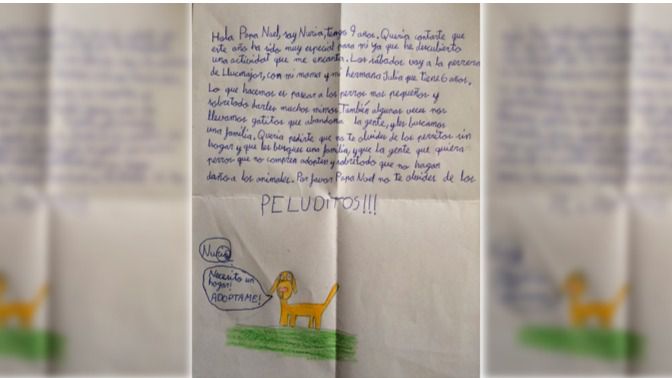 Hola Papa Noel, soy Nuria, tengo 9 años. Quería contarte que
este año ha sido muy especial para mi ya que he descubierto
una actividad que me encanta. Los sábados voy a la perrera
de Llucmajor, con mi mama y mi hermana Julia que tiene 6 años.
Lo que hacemos es pasear a los perros mas pequeños y
sobretodo darles muchos mimos. También algunas veces nos
llevamos gatitos que abandona la gente, y les buscamos
una familia. Quería pedirte que no te olvides de los perritos sin
hogar y que les busques una familia, y que la gente que quiera
perros que no compren adopten y sobretodo que no hagan
daño a los animales. Por favor Papa Noel no te olvides de los
PELUDITOS!!!
Nuria
Necesito un
hogar!
ADOPTAME!